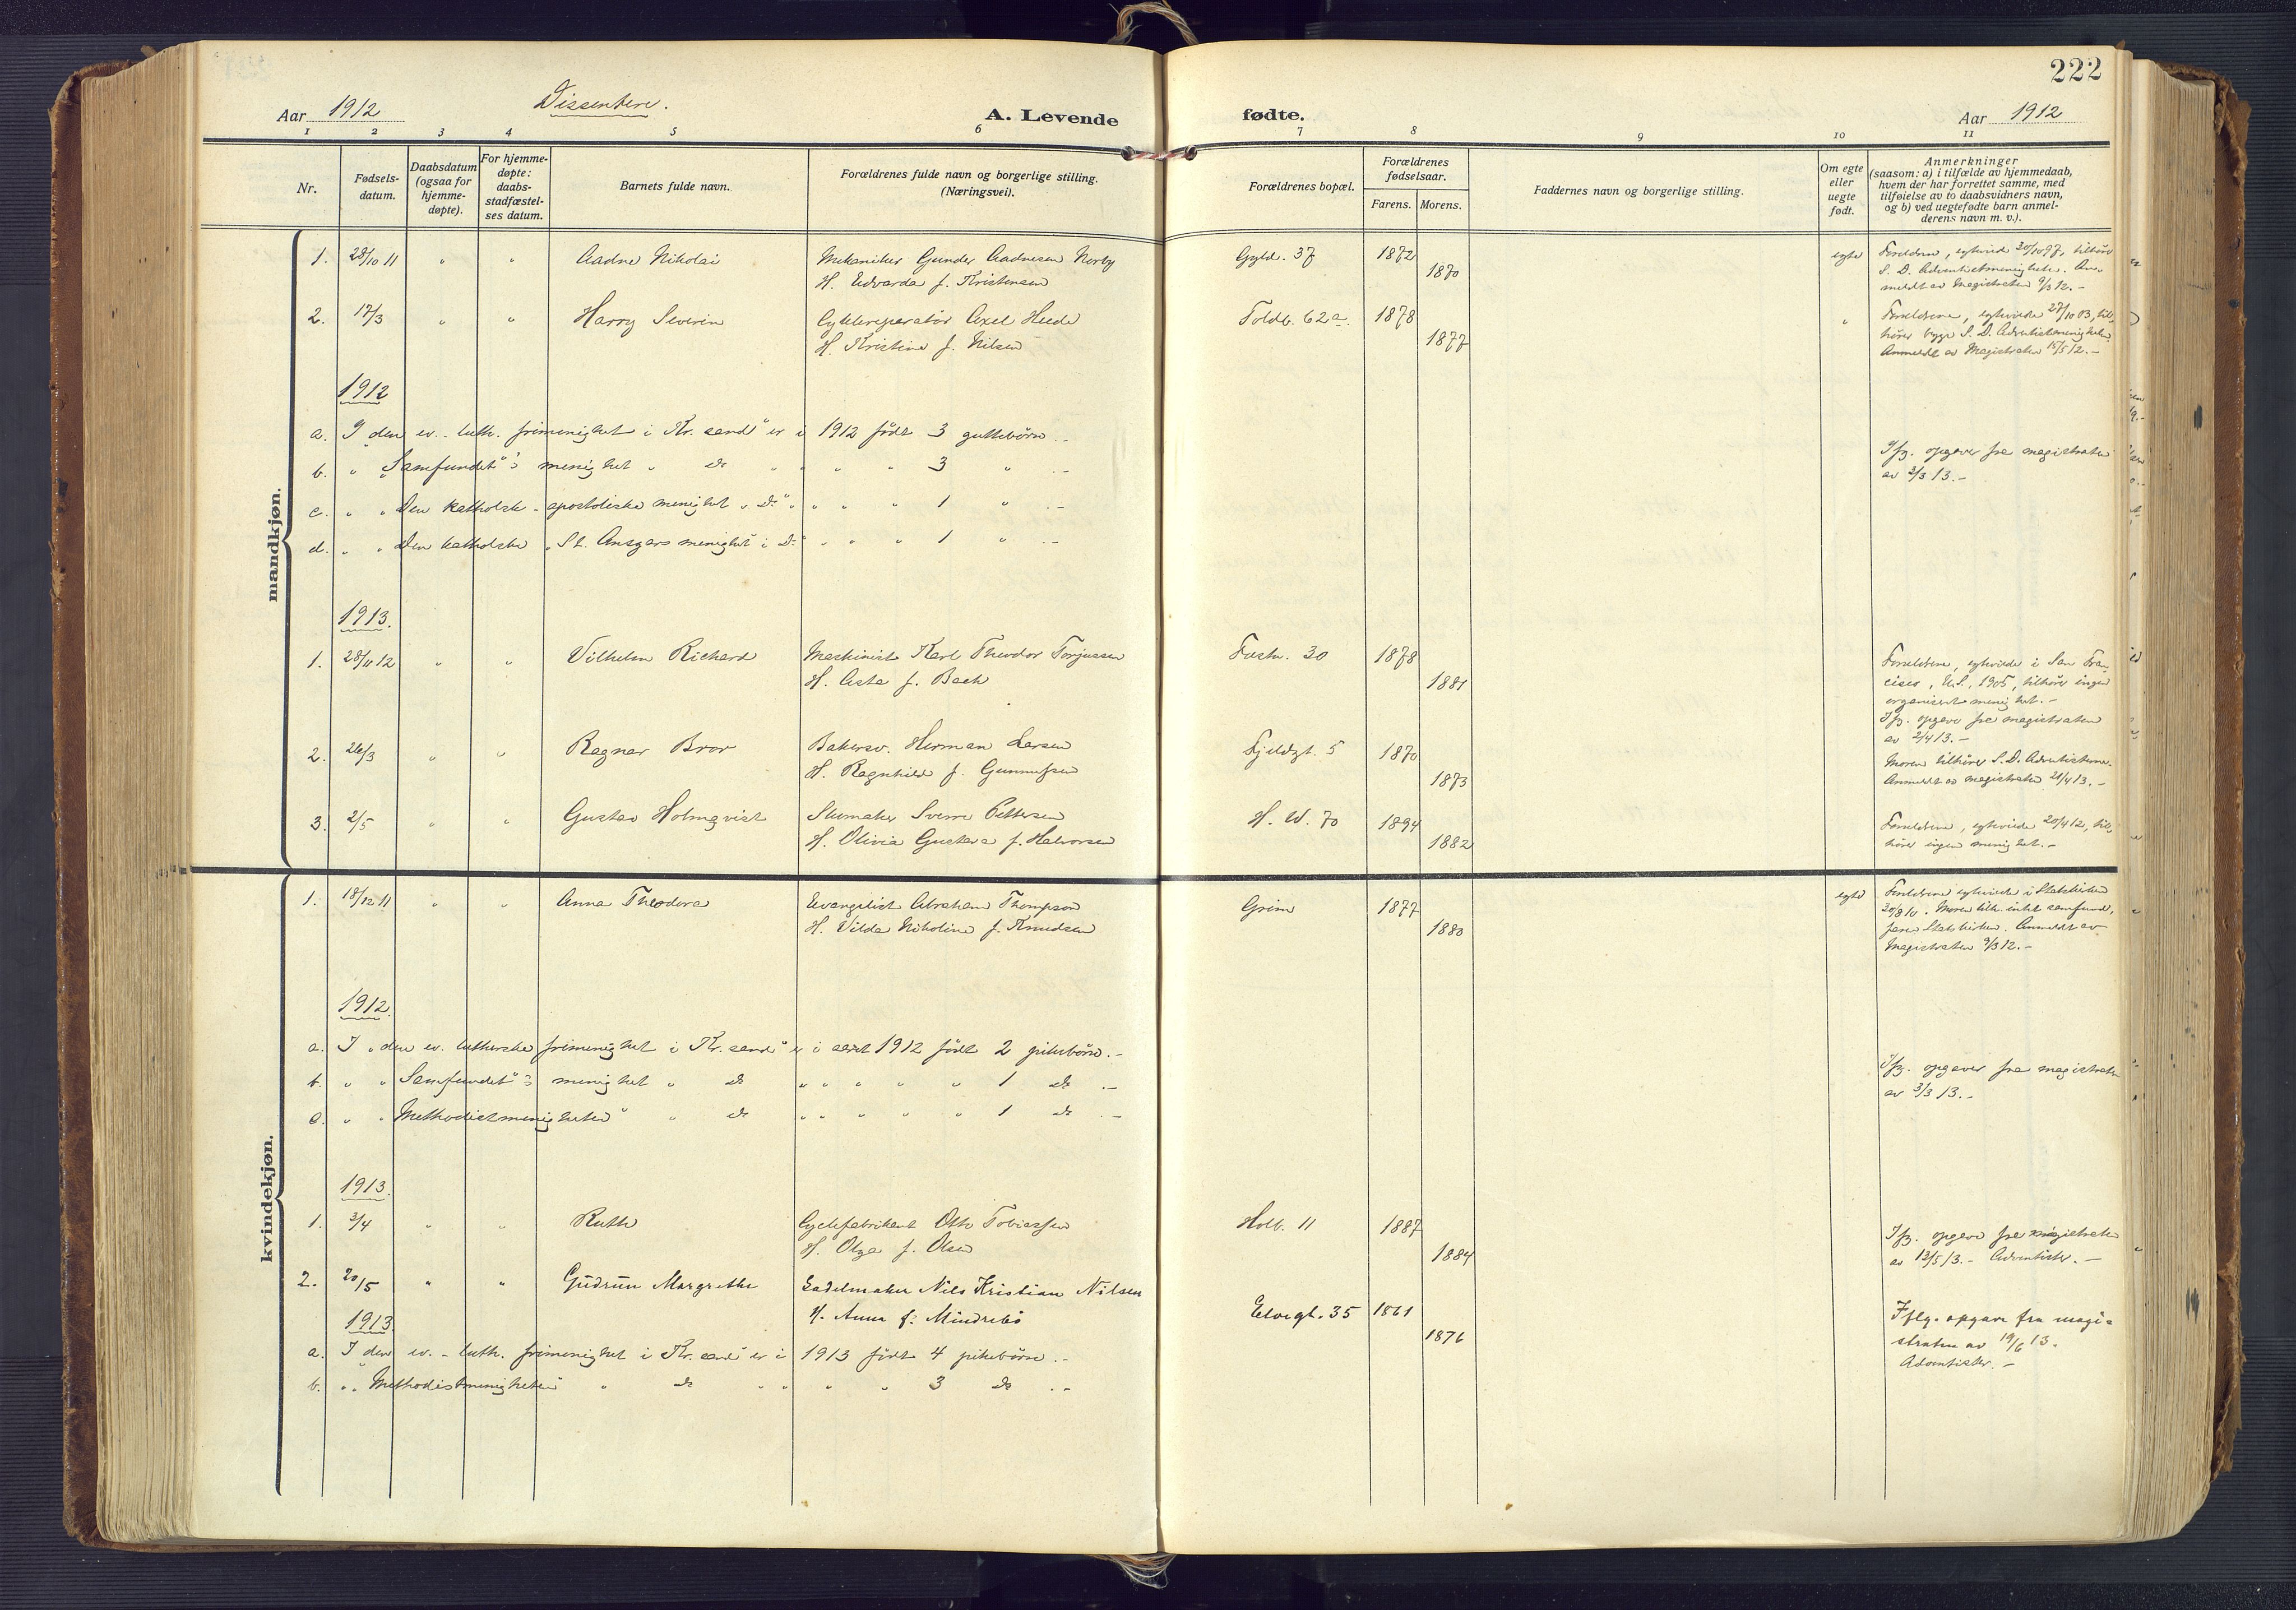 222
Aar 1912
Dissentere.
A. Levende
fødte.
Aar 1912
1 2 3 4 5 6 7 8 9 10 11
Nr.
Fødsels-
datum.
Daabsdatum
(ogsaa for
hjemme-
døpte).
For hjemme-
døpte:
daabs-
stadfæstel-
ses datum.
Barnets fulde navn.
Forældrenes fulde navn og borgerlige stilling.
(Næringsvei).
Forældrenes bopæl.
Forældrenes
fødselsaar.
Farens. Morens.
Faddernes navn og borgerlige stilling.
Om egte
eller
uegte
født.
Anmerkninger
(saasom: a) i tilfælde av hjemmedaab,
hvem der har forrettet samme, med
tilføielse av to daabsvidners navn,
og b) ved uegtefødte barn anmel-
derens navn m. v.).
mandkjøn.
1. 28/10 11 " " Aadne Nikolai Mekaniker Gunder Aadnesen Norby Gyld. 37 1872 egte
H. Edvarda f. Kristensen 1870
Foreldrene, egteviede 30/10 97, tilhører
S. D. Adventistmenigheten. An-
meldt av Magistraten 9/3 12.-
2. 17/3 " " Harry Severin Cykkelreparatør Axel Heede Toldb. 62a. 1878 "
H. Kristine f. Nilsen 1877
Foreldrene, egteviede 27/10 03, til-
hører begge S. D. Adventistmenigheten
Anmeldt av Magistraten 15/5 12.-
1912
a. I "den ev.-luth. frimenighet i Kr.sand" er i 1912 født 3 guttebørn.-
b. " "Samfundet"s menighet " do " " " " 3 " .-
c. " " Den katholsk-apostoliske menighet " Do " " " " 1 " .-
d. " " Den katholske "St. Ansgars menighet" i Do " " " 1 " .-
Ifg. opgaver fra magistraten
av 3/3 13.-
1913.
1. 28/11 12 " " Vilhelm Richard Maskinist Karl Theodor Torjussen Festn. 30 1878
H. Asta f. Bach 1881
Foreldrene, egteviede i San Fran-
cisco, U.S., 1905, tilhører ingen
organisert menighet.-
Ifg. opgave fra magistraten
av 2/4 13.-
2. 26/3 " " Ragnar Bror Bakersv. Herman Larsen Fjeldgt. 5 1870
H. Ragnhild f. Gunnufsen 1873
Moren tilhører S. D. Adventisterne.
Anmeldt av magistraten 21/4 13.-
3. 2/5 " " Gustav Holmqvist Skomaker Sverre Pettersen H. W. 70 1894
H. Olivia Gustava f. Halvorsen 1882
Foreldrene, egteviede 20/4 12, til-
hører ingen menighet.-
kvindekjøn.
1. 18/12 11 " " Anna Theodora Evangelist Abraham Thompson Grim 1877 egte
H. Vilda Nikoline f. Knudsen 1880
Foreldrene egteviede i Statskirken
30/8 10. Moren tilh. intet samfund,
faren Statskirken. Anmeldt av
Magistraten 9/3 12.-
1912.
a. I "den ev. lutherske frimenighet i Kr.sand" er i aaret 1912 født 2 pikebørn.-
b. " " Samfundet"s menighet " do " " " " " 1 do .-
c. " " Methodistmenigheten" " do " " " " " 1 do .-
Ifg. opgaver fra magistraten
av 3/3 13.-
1913.
1. 3/4 " " Ruth Cyclefabrikant Otto Tobiassen Holb. 11 1887
H. Olga f. Olsen 1884
Ifg. opgave fra magistraten
av 13/5 13.- Adventister.-
2. 20/5 " " Gudrun Margrethe Sadelmaker Nils Kristian Nilsen Elvegt. 35 1861
H. Anna f. Mindrebø 1876
Iflg. opgave fra magi-
straten av 19/6 13.
Adventister.-
1913
a. I "den ev.-luth. frimenighet i Kr.sand" er i 1913 født 4 pikebørn.-
b. " " Methodistmenigheten" " do " " " " 3 do .-